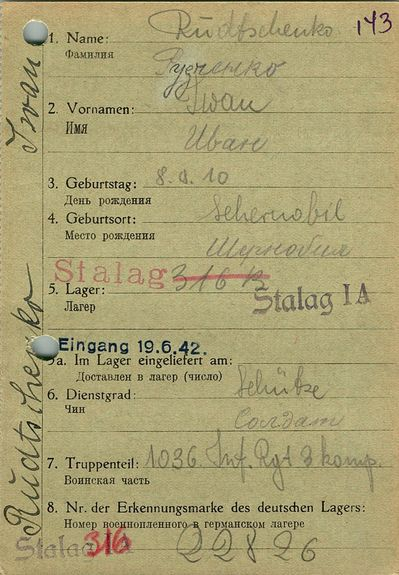 143
1. Name: Rudtschenko
Фамилия
Рудченко
2. Vornamen: Iwan
Имя
Иван
3. Geburtstag: 8.9.10
День рождения
4. Geburtsort: Schernobil
Место рождения
Шернобил
Stalag 316 B
5. Lager: Stalag IA
Лагерь
Eingang 19.6.42.
5a. Im Lager eingeliefert am:
Доставлен в лагерь (число)
6. Dienstgrad: Schütze
Чин
Солдат
7. Truppenteil: 1036 Inf. Rgt 3 komp.
Воинская часть
8. Nr. der Erkennungsmarke des deutschen Lagers:
Номер военнопленного в германском лагере
Stalag 316
22826
Rudtschenko Iwan